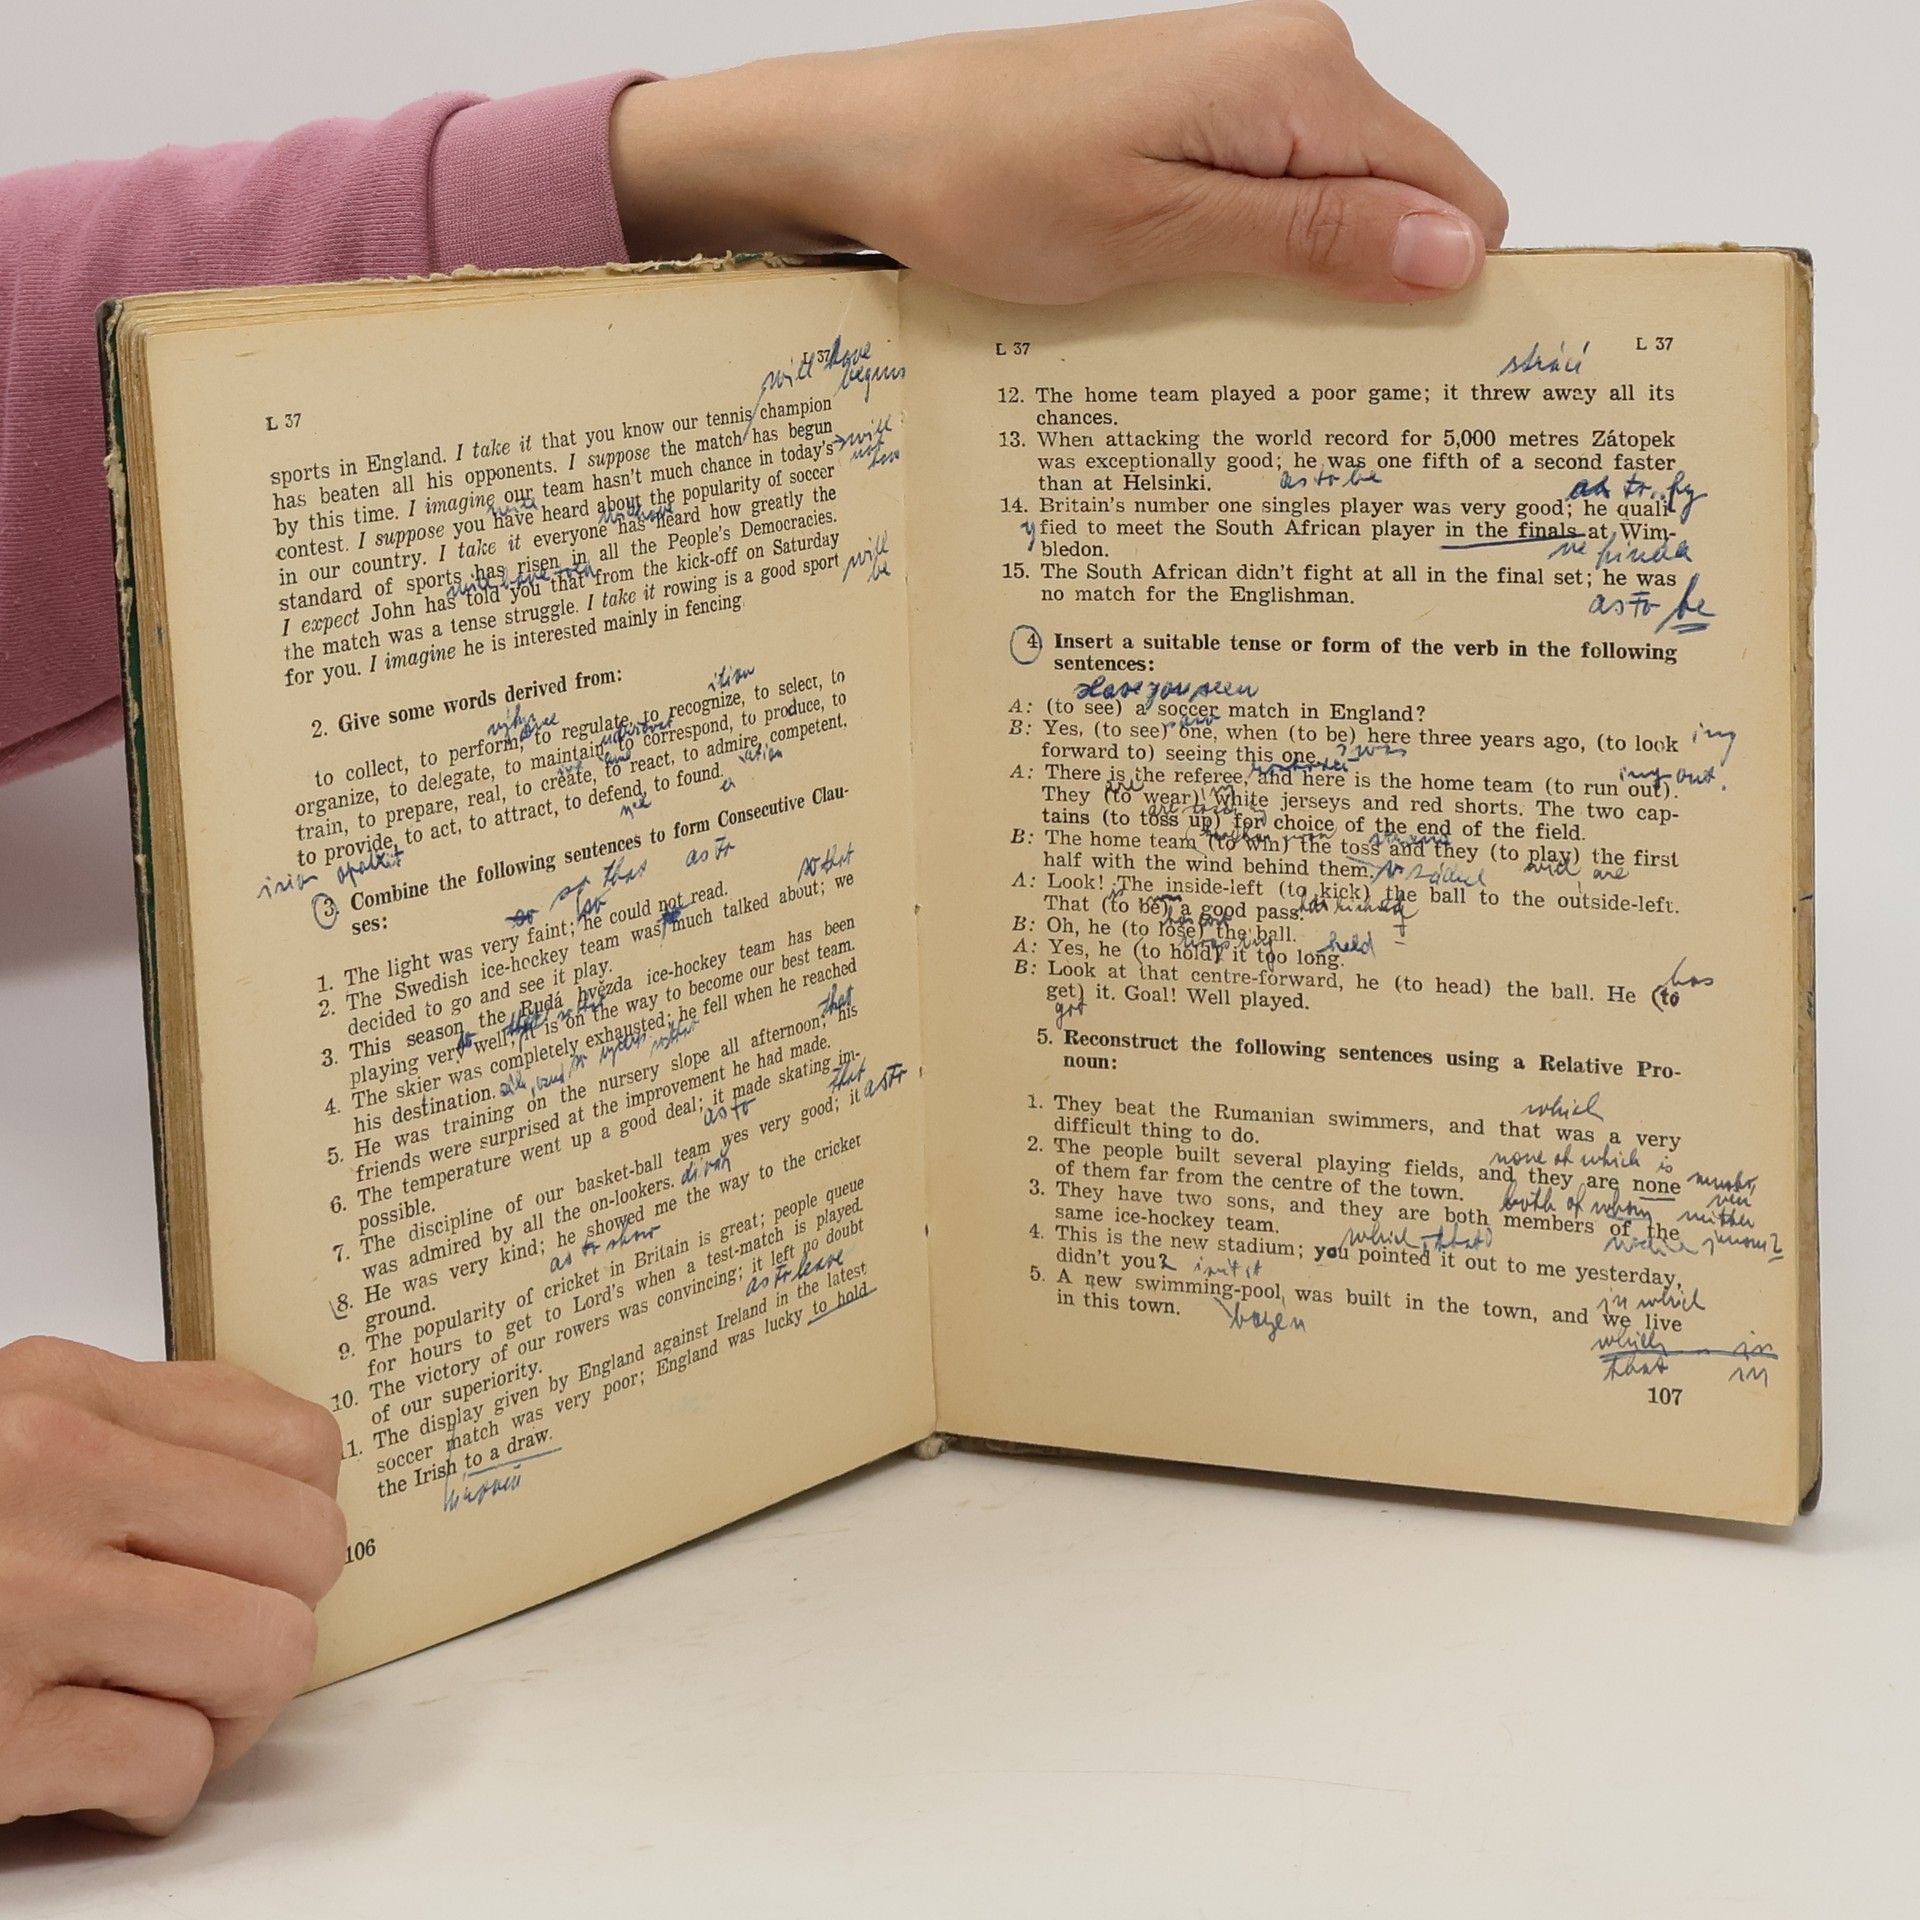 L 37
L 37
will have
begun
sports in England. I take it that you know our tennis champion
has beaten all his opponents. I suppose the match has begun
will
by this time. I imagine our team hasn't much chance in today's
contest. I suppose you have heard about the popularity of soccer
in our country. I take it everyone has heard how greatly the
standard of sports has risen in all the People's Democracies.
will have told
I expect John has told you that from the kick-off on Saturday
will
be
the match was a tense struggle. I take it rowing is a good sport
for you. I imagine he is interested mainly in fencing.
2. Give some words derived from:
ition
to collect, to perform, to regulate, to recognize, to select, to
organize, to delegate, to maintain, to correspond, to produce, to
train, to prepare, real, to create, to react, to admire, competent,
ation
to provide, to act, to attract, to defend, to found.
3. Combine the following sentences to form Consecutive Clau-
ses:
so that
as to
so that
so
1. The light was very faint; he could not read.
2. The Swedish ice-hockey team was much talked about; we
decided to go and see it play.
3. This season the Rudá hvězda ice-hockey team has been
playing very well; it is on the way to become our best team.
4. The skier was completely exhausted; he fell when he reached
his destination.
that
5. He was training on the nursery slope all afternoon; his
friends were surprised at the improvement he had made.
6. The temperature went up a good deal; it made skating im-
possible.
that
as to
as to
7. The discipline of our basket-ball team yes very good; it
was admired by all the on-lookers.
8. He was very kind; he showed me the way to the cricket
ground.
as to show
9. The popularity of cricket in Britain is great; people queue
for hours to get to Lord's when a test-match is played.
10. The victory of our rowers was convincing; it left no doubt
of our superiority.
as to leave
11. The display given by England against Ireland in the latest
soccer match was very poor; England was lucky to hold
the Irish to a draw.
106
L 37
L 37
ztrácí
12. The home team played a poor game; it threw away all its
chances.
13. When attacking the world record for 5,000 metres Zátopek
was exceptionally good; he was one fifth of a second faster
than at Helsinki.
as to be
as to..fy
14. Britain's number one singles player was very good; he quali-
y fied to meet the South African player in the finals at Wim-
bledon.
ve finále
15. The South African didn't fight at all in the final set; he was
no match for the Englishman.
as to be
4. Insert a suitable tense or form of the verb in the following
sentences:
Have you seen
A: (to see) a soccer match in England?
saw
B: Yes, (to see) one, when (to be) here three years ago, (to look
ing
forward to) seeing this one.
I was
A: There is the referee, and here is the home team (to run out).
ing out.
They (to wear) white jerseys and red shorts. The two cap-
tains (to toss up) for choice of the end of the field.
B: The home team (to win) the toss and they (to play) the first
half with the wind behind them.
A: Look! The inside-left (to kick) the ball to the outside-left.
That (to be) a good pass.
B: Oh, he (to lose) the ball.
A: Yes, he (to hold) it too long.
held
B: Look at that centre-forward, he (to head) the ball. He (to
has
get) it. Goal! Well played.
got
5. Reconstruct the following sentences using a Relative Pro-
noun:
which
1. They beat the Rumanian swimmers, and that was a very
difficult thing to do.
none of which is
2. The people built several playing fields, and they are none
of them far from the centre of the town.
both of whom
neither
3. They have two sons, and they are both members of the
same ice-hockey team.
which that
4. This is the new stadium; you pointed it out to me yesterday,
didn't you?
in which
5. A new swimming-pool was built in the town, and we live
in this town.
bazén
which in
that in
107